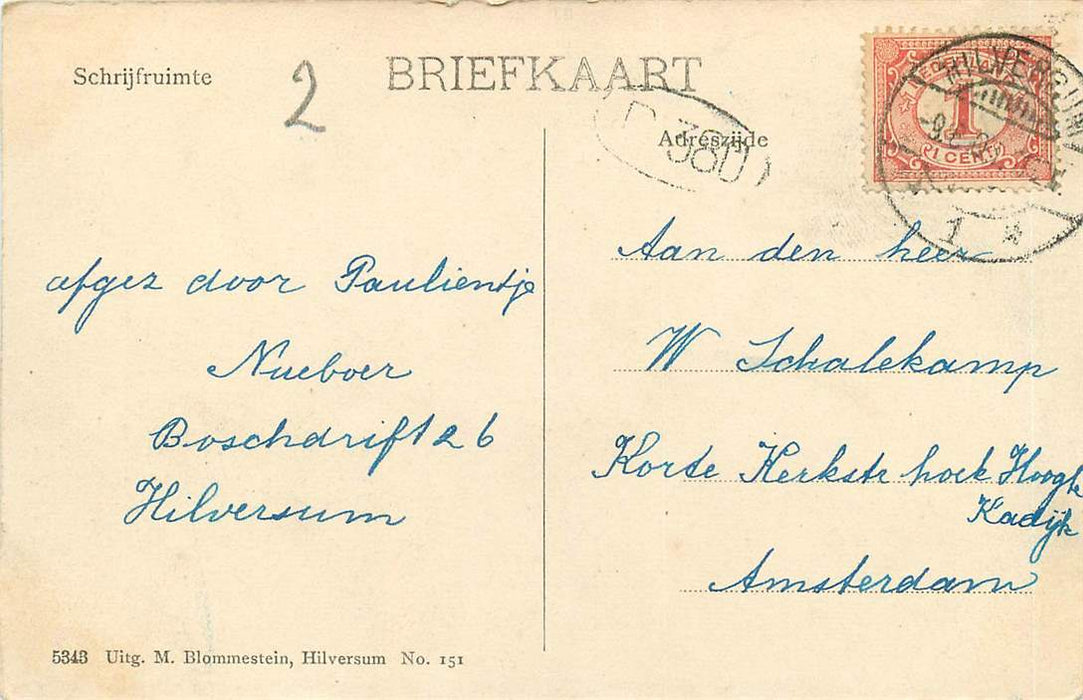 Schrijfruimte
2
BRIEFKAART
Adreszijde
380
NEDERLAND
1
1 CENT
HILVERSUM
1
afgez door Paulientje
Nueboer
Boschdrift 26
Hilversum
Aan den heer
W Schalekamp
Korte Kerkstr hoek Hoogte
Kadijk
Amsterdam
5343 Uitg. M. Blommestein, Hilversum No. 151